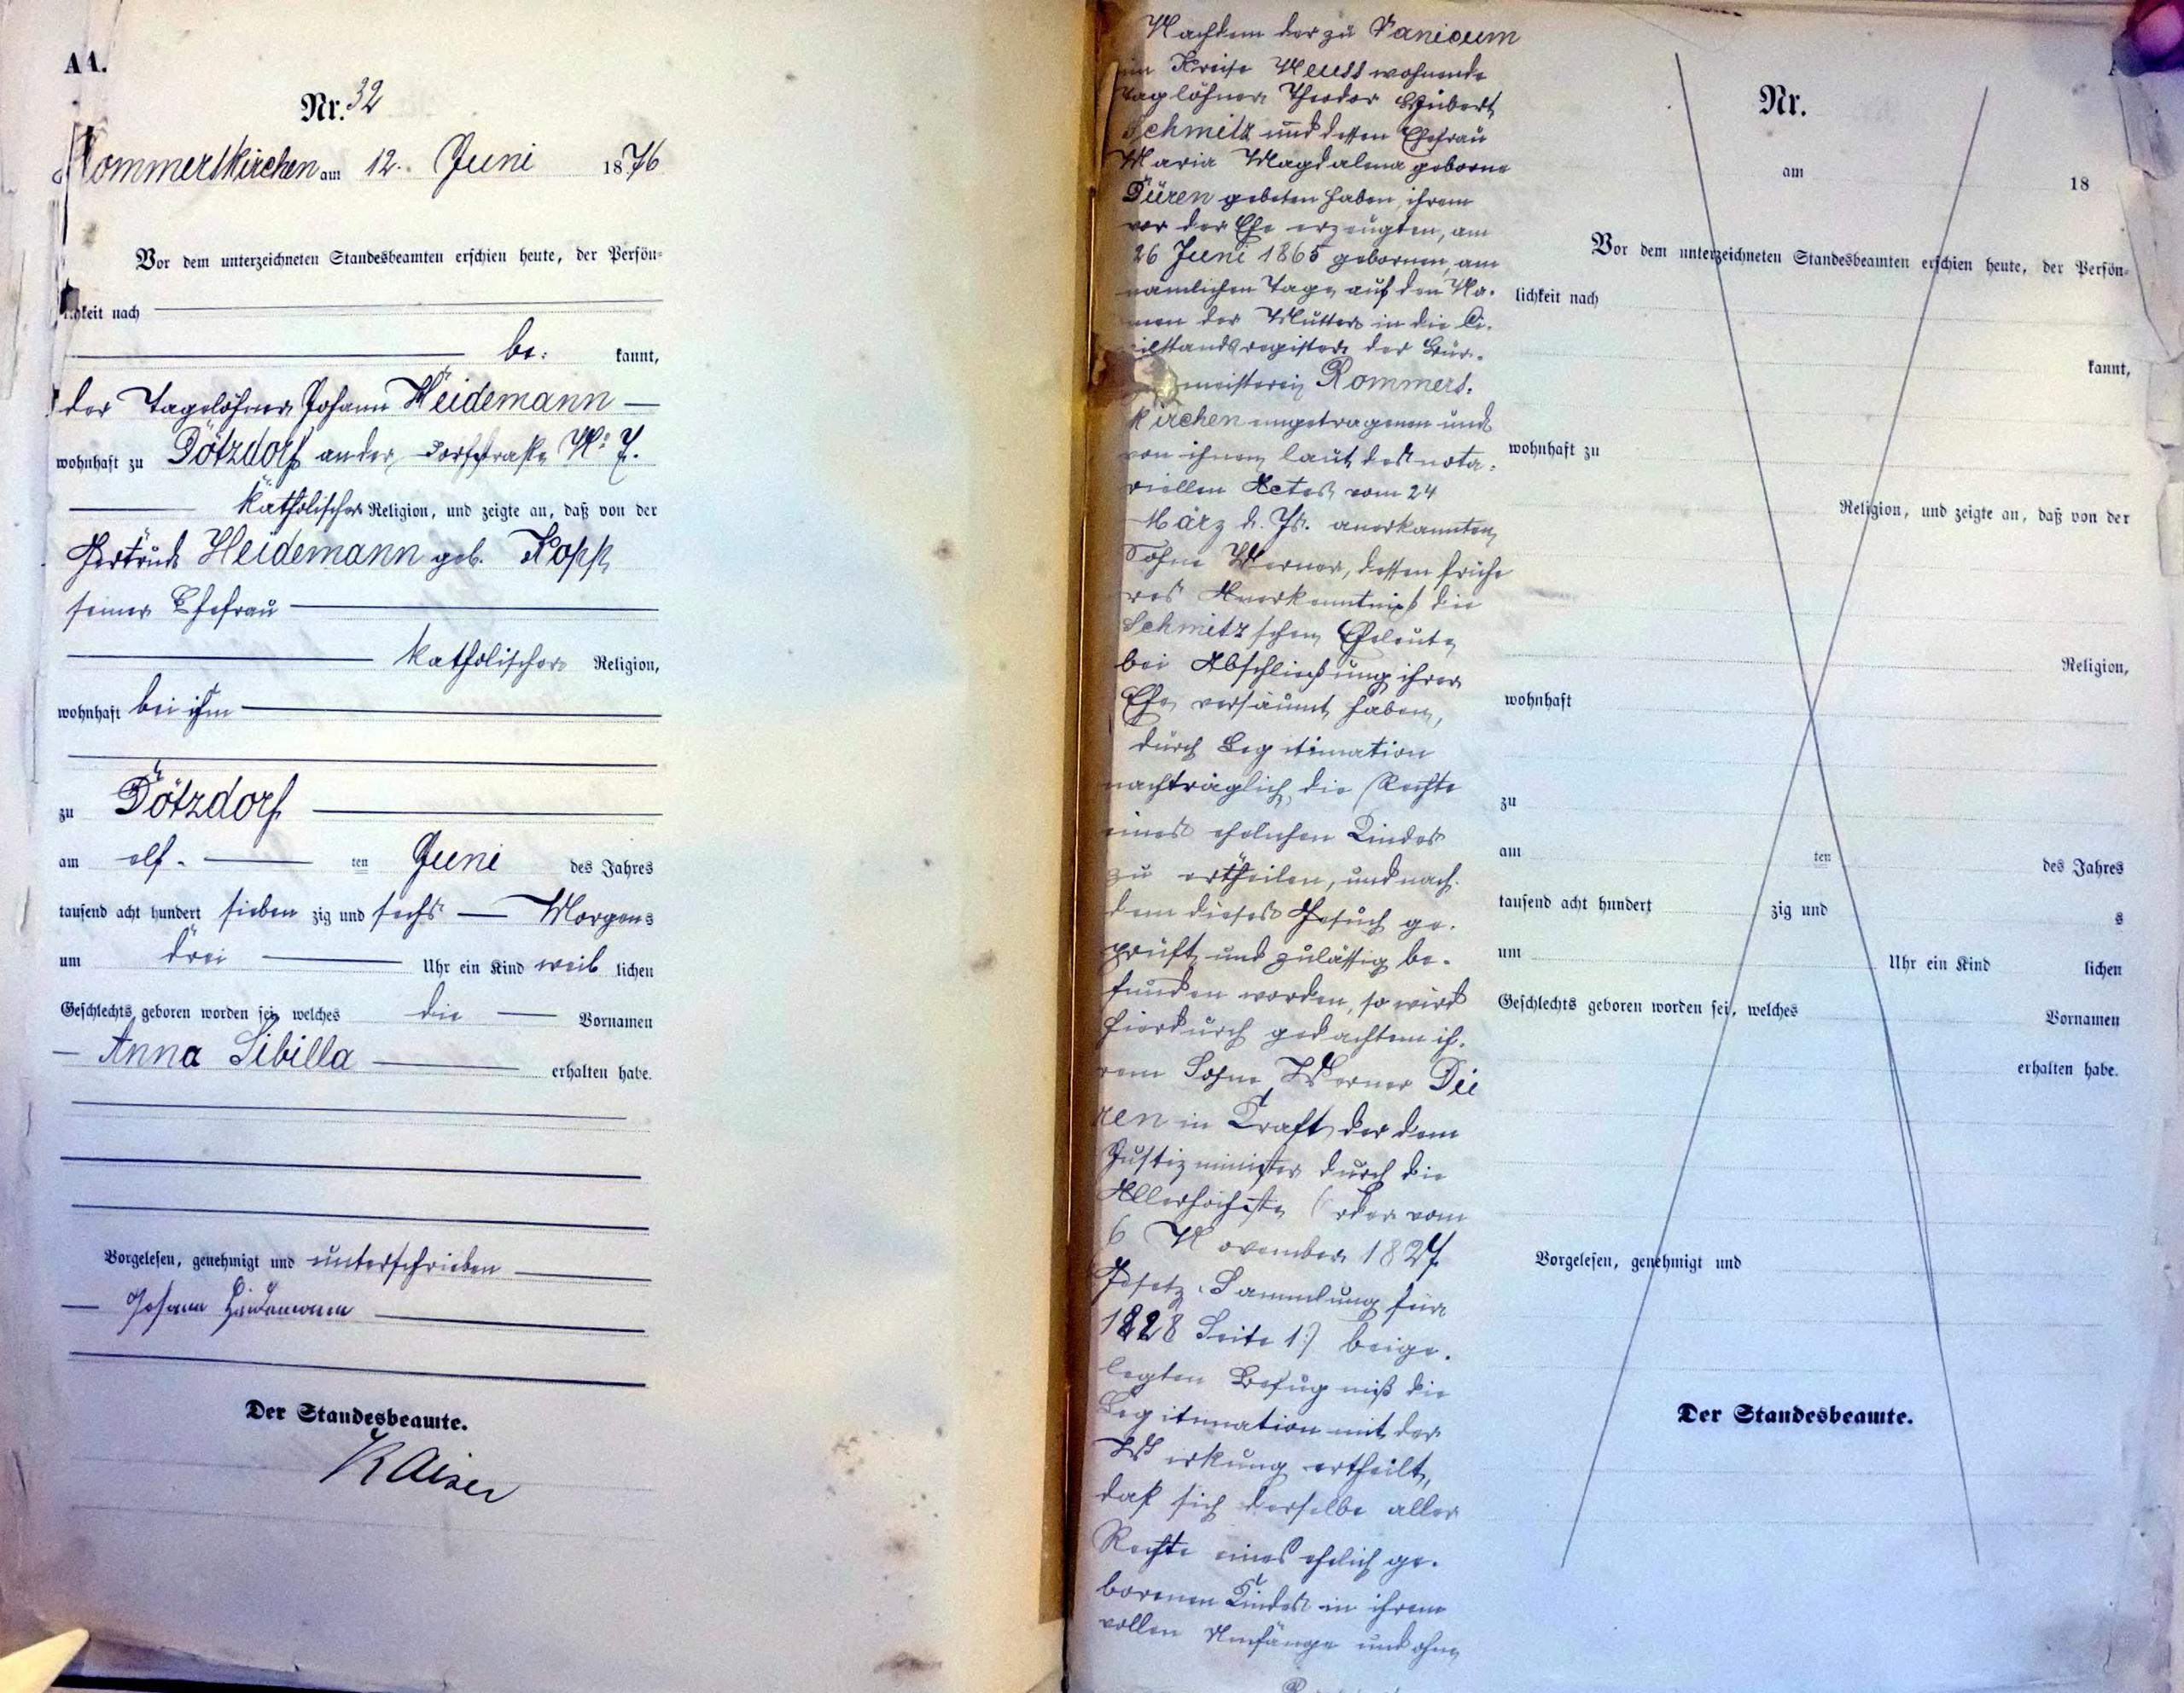 A1.
Nr. 32
Rommerskirchen am 12. Juni 1876
Vor dem unterzeichneten Standesbeamten erschien heute, der Persön-
lichkeit nach
be: kannt,
der Tagelöhner Johann Heidemann
wohnhaft zu Dötzdorf an der Dorfstraße No 7.
katholischer Religion, und zeigte an, daß von der
Gertrud Heidemann geb. Kopp,
seiner Ehefrau
katholischer Religion,
wohnhaft bei ihm
zu Dötzdorf
am elf- ten Juni des Jahres
tausend acht hundert sieben zig und sechs Morgens
um drei Uhr ein Kind weib lichen
Geschlechts geboren worden sei, welches die Vornamen
Anna Sibilla erhalten habe.
Vorgelesen, genehmigt und unterschrieben
Johann Heidemann
Der Standesbeamte.
Kaiser
Nachdem der zu
im Kreise Neuss wohnende
Taglöhner Theodor Hubert
Schmitz und dessen Ehefrau
Maria Magdalena geborne
Düren gebeten haben, ihrem
vor der Ehe erzeugten, am
26 Juni 1865 gebornen, am
nämlichen Tage auf den Na-
men der Mutter in die Ci-
vilstandsregister der Bür-
germeisterei Rommers-
kirchen eingetragenen und
von ihnen laut des nota-
riellen Actes vom 24
März d. Js. anerkannten
Sohne Werner, dessen frühe
res Anerkenntniß die
Schmitz'schen Eheleute
bei Abschließung ihrer
Ehe versäumt haben,
durch Legitimation
nachträglich die Rechte
eines ehelichen Kindes
zu ertheilen, und nach-
dem dieses Gesuch ge-
prüft und zulässig be-
funden worden, so wird
hierdurch gedachtem ih-
rem Sohne Werner Dü
ren in Kraft der dem
Justizminister durch die
Allerhöchste Order vom
6 November 1827
Gesetz-Sammlung für
1828 Seite 1) beige-
legten Befugniß die
Legitimation mit der
Wirkung ertheilt,
daß sich derselbe aller
Rechte eines ehelich ge-
borenen Kindes in ihrem
vollen Umfange und ohne
Nr.
am 18
Vor dem unterzeichneten Standesbeamten erschien heute, der Persön-
lichkeit nach
kannt,
wohnhaft zu
Religion, und zeigte an, daß von der
Religion,
wohnhaft
zu
am ten des Jahres
tausend acht hundert zig und s
um Uhr ein Kind lichen
Geschlechts geboren worden sei, welches Vornamen
erhalten habe.
Vorgelesen, genehmigt und
Der Standesbeamte.